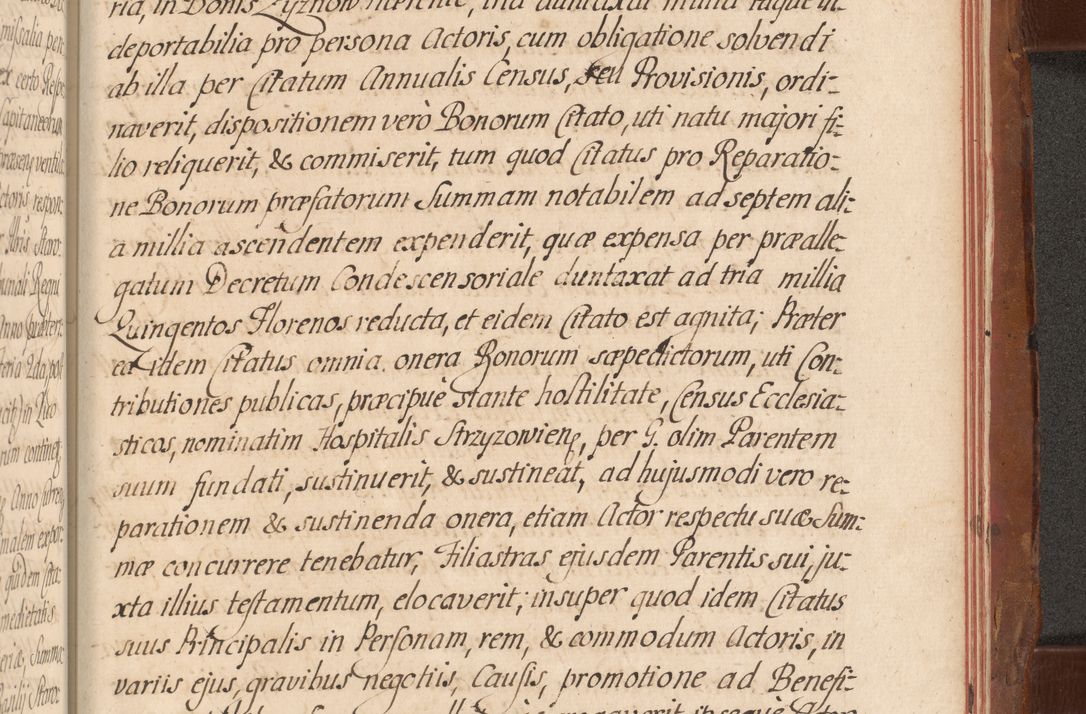 ria, in Bonis Zyznow
deportabilia pro persona Actoris, cum obligatione solvendi
ab illa per Citatum Annualis Census, seu Provisionis, ordi-
naverit, dispositionem verò Bonorum Citato, uti natu majori fi-
lio reliquerit, & commiserit, tum quod Citatus pro Reparatio-
ne Bonorum præfatorum Summam notabilem ad septem ali-
a millia ascendentem expenderit, quæ expensa per præalle-
gatum Decretum Condescensoriale duntaxat ad tria millia
Quingentos Florenos reducta, et eidem Citato est agnita; Præter
ea idem Citatus omnia onera Bonorum sæpedictorum, uti Con-
tributiones publicas, præcipuè stante hostilitate, Census Ecclesia-
sticos, nominatim Hospitalis Strzyzowien, per G. olim Parentem
suum fundati, sustinuerit, & sustineat, ad hujusmodi vero re-
parationem & sustinenda onera, etiam Actor respectu suæ Sum-
mæ concurrere tenebatur, Filiastras ejusdem Parentis sui, ju-
xta illius testamentum, elocaverit; insuper quod idem Citatus
suus Principalis in Personam, rem, & commodum Actoris, in
variis ejus, gravibus negotiis, Causis, promotione ad Benefi-